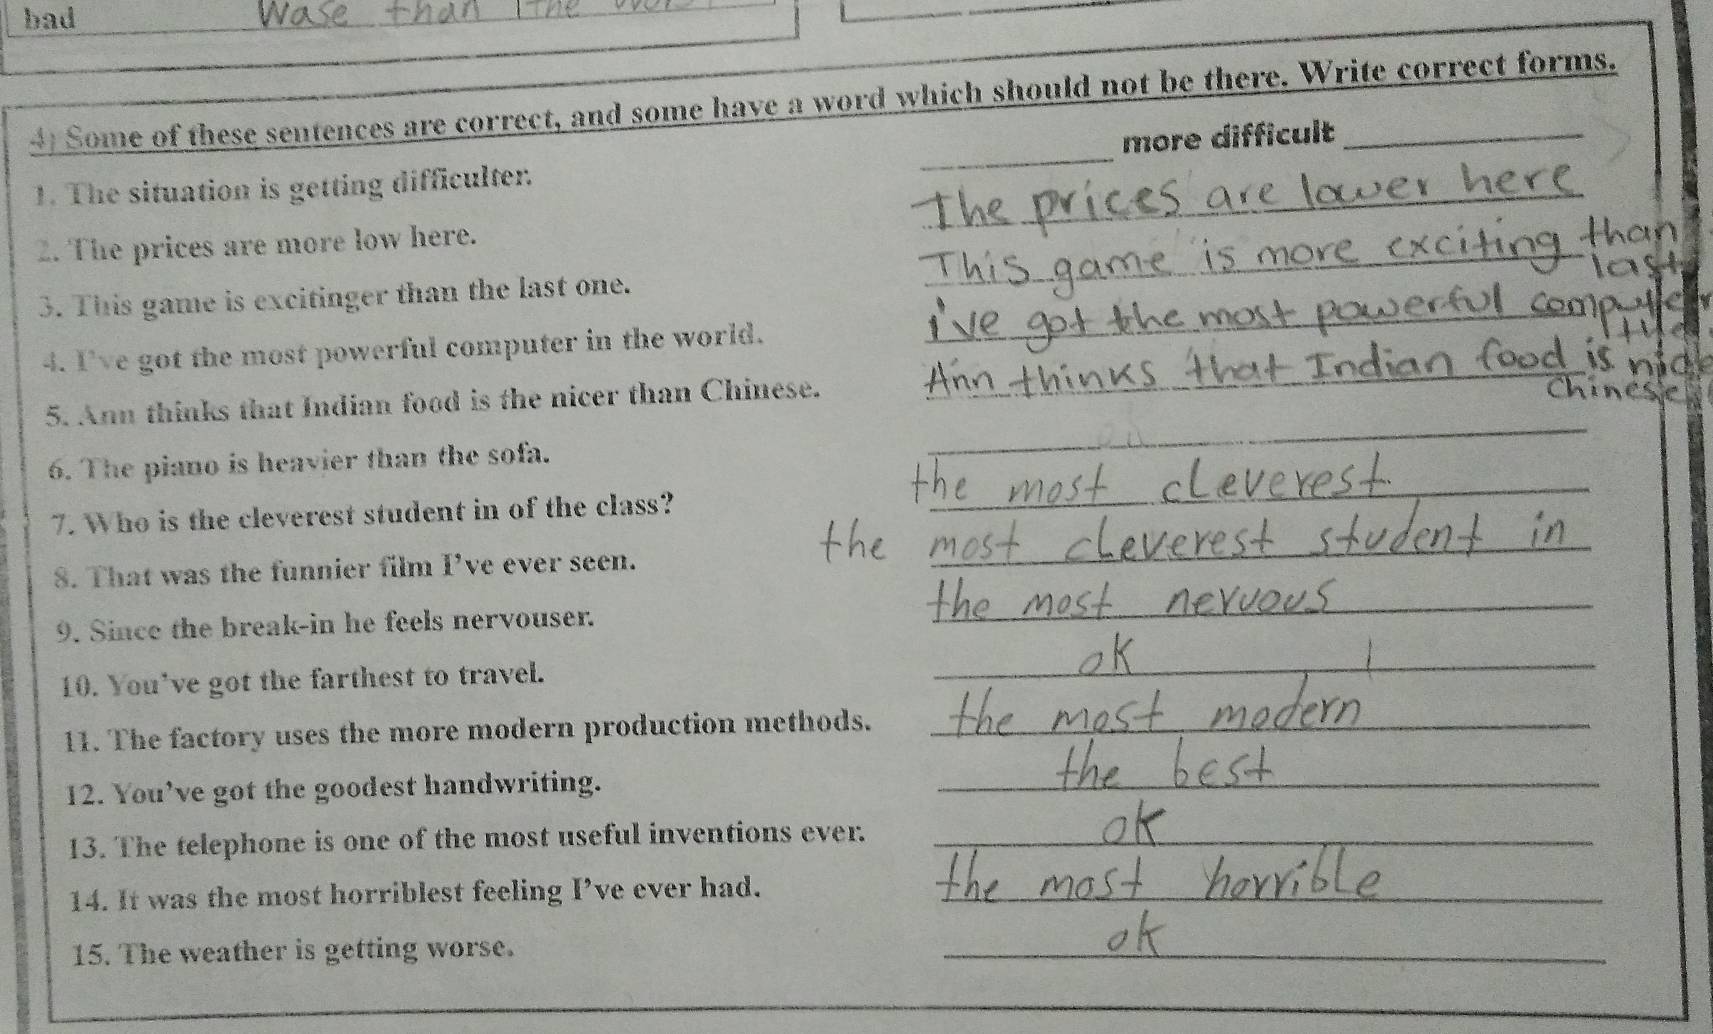 bad Wase than the
4) Some of these sentences are correct, and some have a word which should not be there. Write correct forms.
1. The situation is getting difficulter. more difficult
2. The prices are more low here. The prices are lower here
3. This game is excitinger than the last one. This game is more exciting than last
4. I've got the most powerful computer in the world. i've got the most powerful computer
5. Ann thinks that Indian food is the nicer than Chinese. Ann thinks that Indian food is Chinese
6. The piano is heavier than the sofa.
7. Who is the cleverest student in of the class? the most cleverest.
8. That was the funnier film I've ever seen. the most cleverest student in
9. Since the break-in he feels nervouser. the most nervous
10. You've got the farthest to travel. ok
11. The factory uses the more modern production methods. the most modern
12. You've got the goodest handwriting. the best
13. The telephone is one of the most useful inventions ever. ok
14. It was the most horriblest feeling I've ever had. the most horrible
15. The weather is getting worse. ok